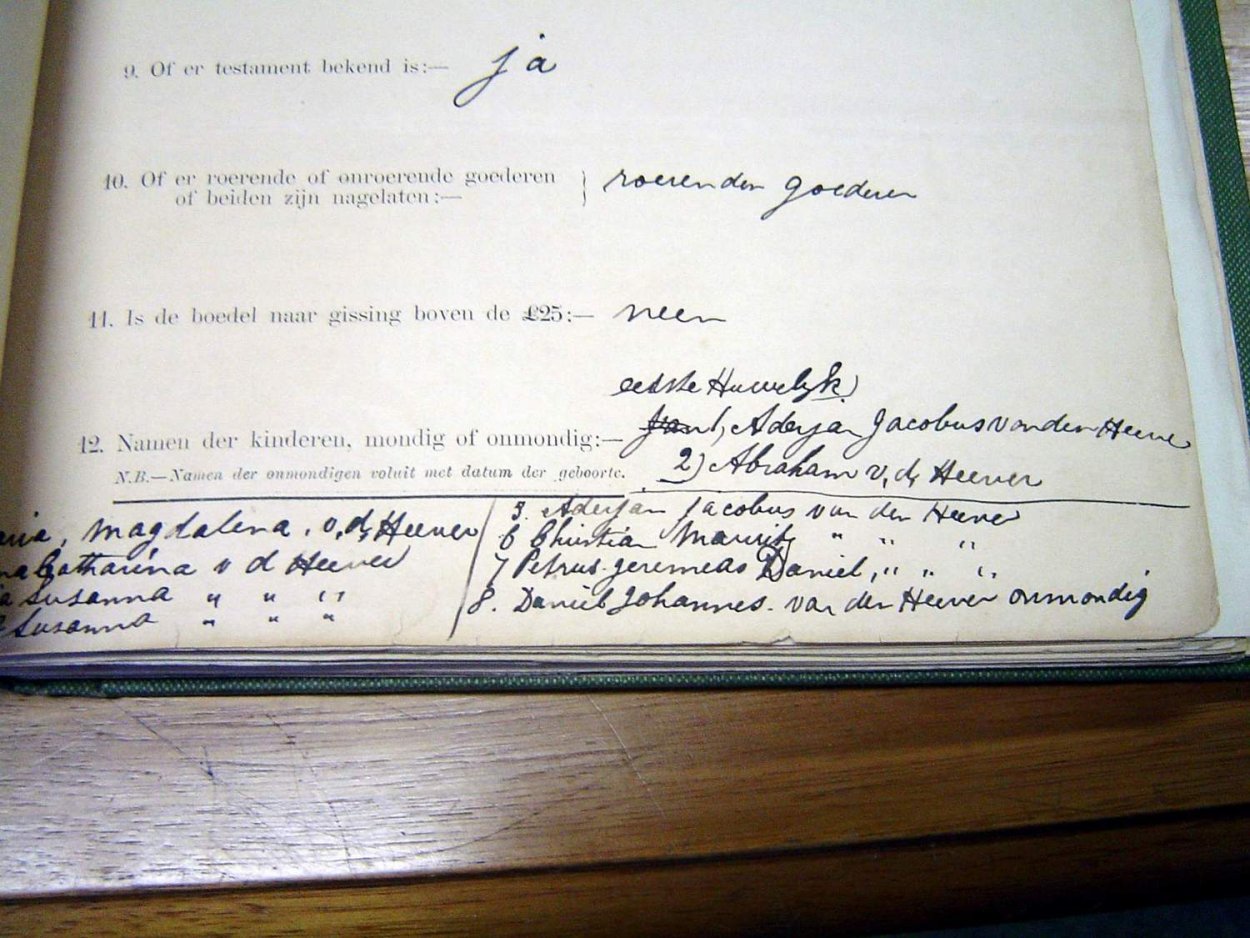 9. Of er testament bekend is:— ja
10. Of er roerende of onroerende goederen
of beiden zijn nagelaten:— } roerenden goederen
11. Is de boedel naar gissing boven de £25:— neen
eerste Huwelijk)
12. Namen der kinderen, mondig of onmondig:— 1, Aderjan Jacobus van den Heever
N.B.—Namen der onmondigen voluit met datum der geboorte. 2) Abraham v, d, Heever
Magdalena. v, d, Heever
Catharina v d Heever
Susanna " " "
Susanna " " "
5. Aderjan Jacobus van den Heever
6 Christian Maurits " " "
7 Petrus Jeremeas Daniel, " " "
8. Daniel Johannes. van den Heever onmondig